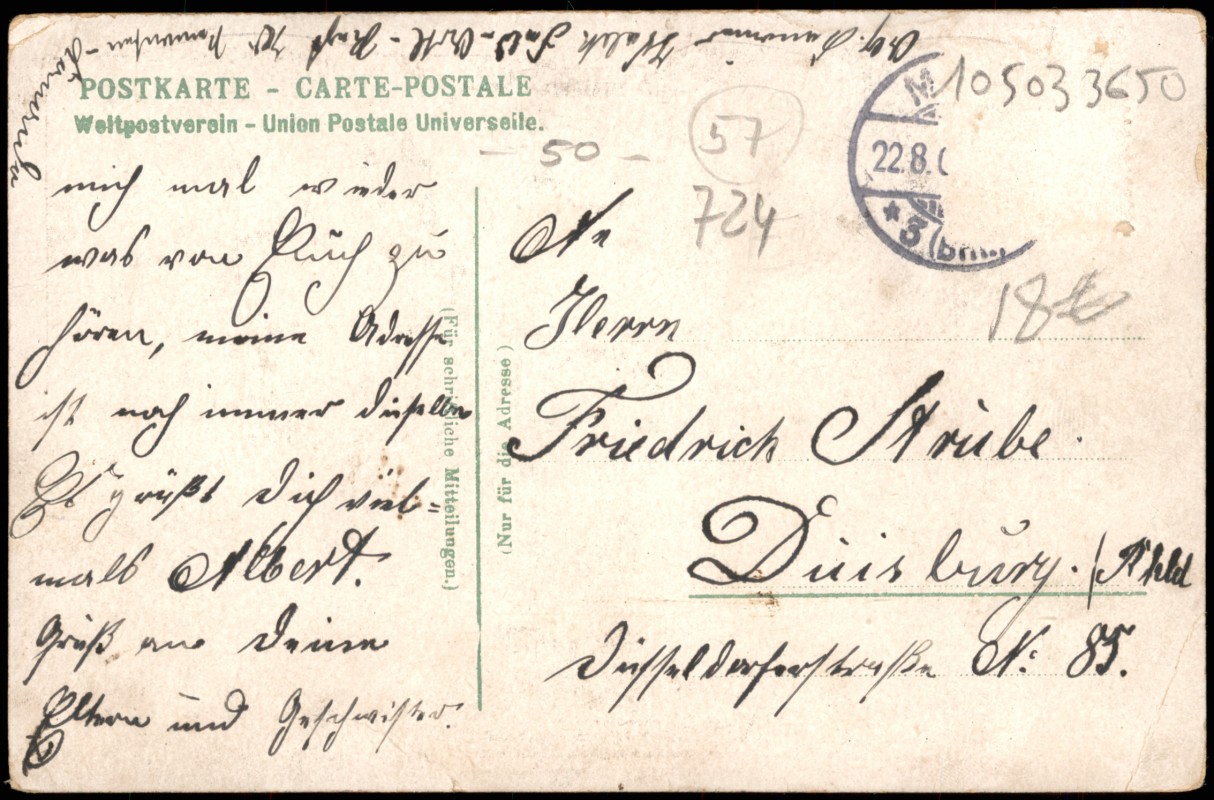 POSTKARTE - CARTE-POSTALE
Weltpostverein - Union Postale Universelle.
mich mal wieder
was von Euch zu
hören, meine Adresse
ist noch immer dieselbe
Es grüßt Dich viel=
mals Albert.
Gruß an Deine
Eltern und Geschwister.
(Für schriftliche Mitteilungen.)
(Nur für die Adresse)
An
Herrn
Friedrich Strübe.
Duisburg.
Düsseldorferstraße No 85.
22.8.
* 3 (Bhf.)
1050333650
57
- 50 -
724
18